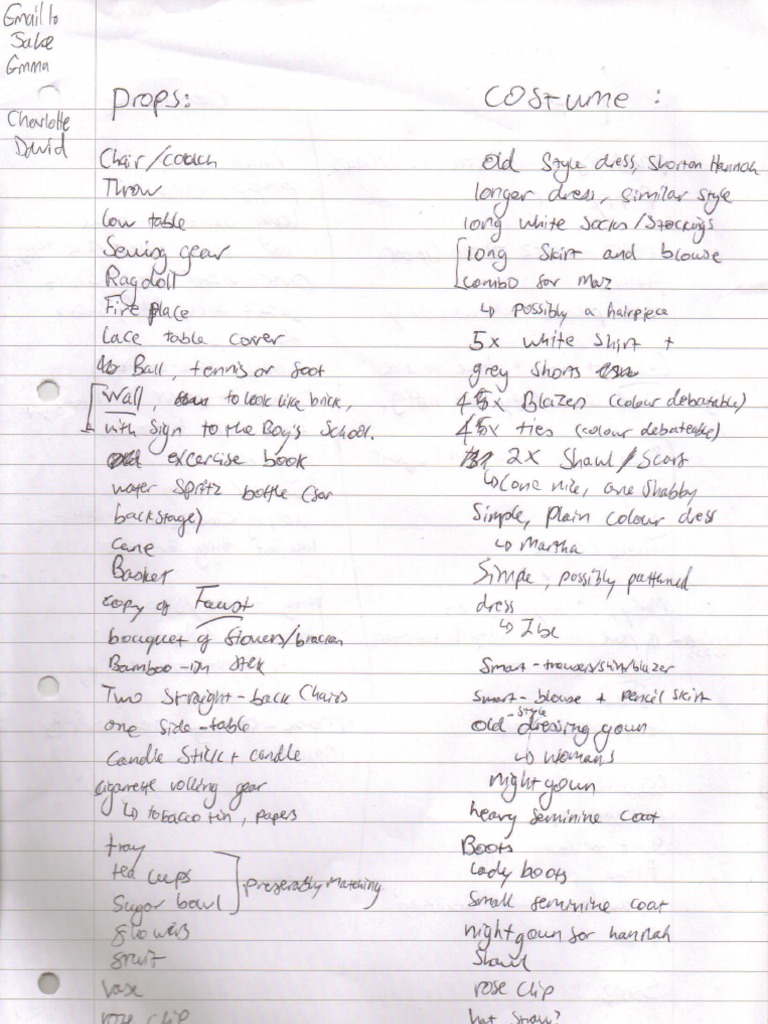 Email to
Jake
Emma
Charlotte
David
Props:
Chair/couch
Throw
low table
Sewing gear
Ragdoll
Fire place
Lace table cover
Ball, tennis or foot
Wall, to look like brick,
with Sign to the Boy's School.
excercise book
water spritz bottle (for
backstage)
cane
Basket
copy of Faust
bouquet of flowers/bracken
Bamboo-ish stick
Two Straight-back Chairs
one Side-table
Candle Stick + candle
cigarette rolling gear
↳ tobacco tin, papers
tray
tea cups
Sugar bowl
preferably matching
flowers
fruit
Vase
rose clip
Costume:
Old Style dress, Short on Hannah
longer dress, similar style
long white Socks/Stockings
long Skirt and blouse
combo for Maz
↳ possibly a hairpiece
5x white Shirt +
grey shorts
5x Blazer (colour debatable)
5x ties (colour debateable)
2x Shawl/Scarf
↳ (one nice, one shabby
Simple, plain colour dress
↳ Martha
Simple, possibly patterned
dress
↳ Ilse
Smart-trousers/shirt/blazer
smart-blouse + pencil skirt
Old-style dressing gown
↳ Womans
nightgown
heavy feminine coat
Boots
Lady boots
Small feminine coat
nightgown for hannah
Shawl
rose clip
hat straw?